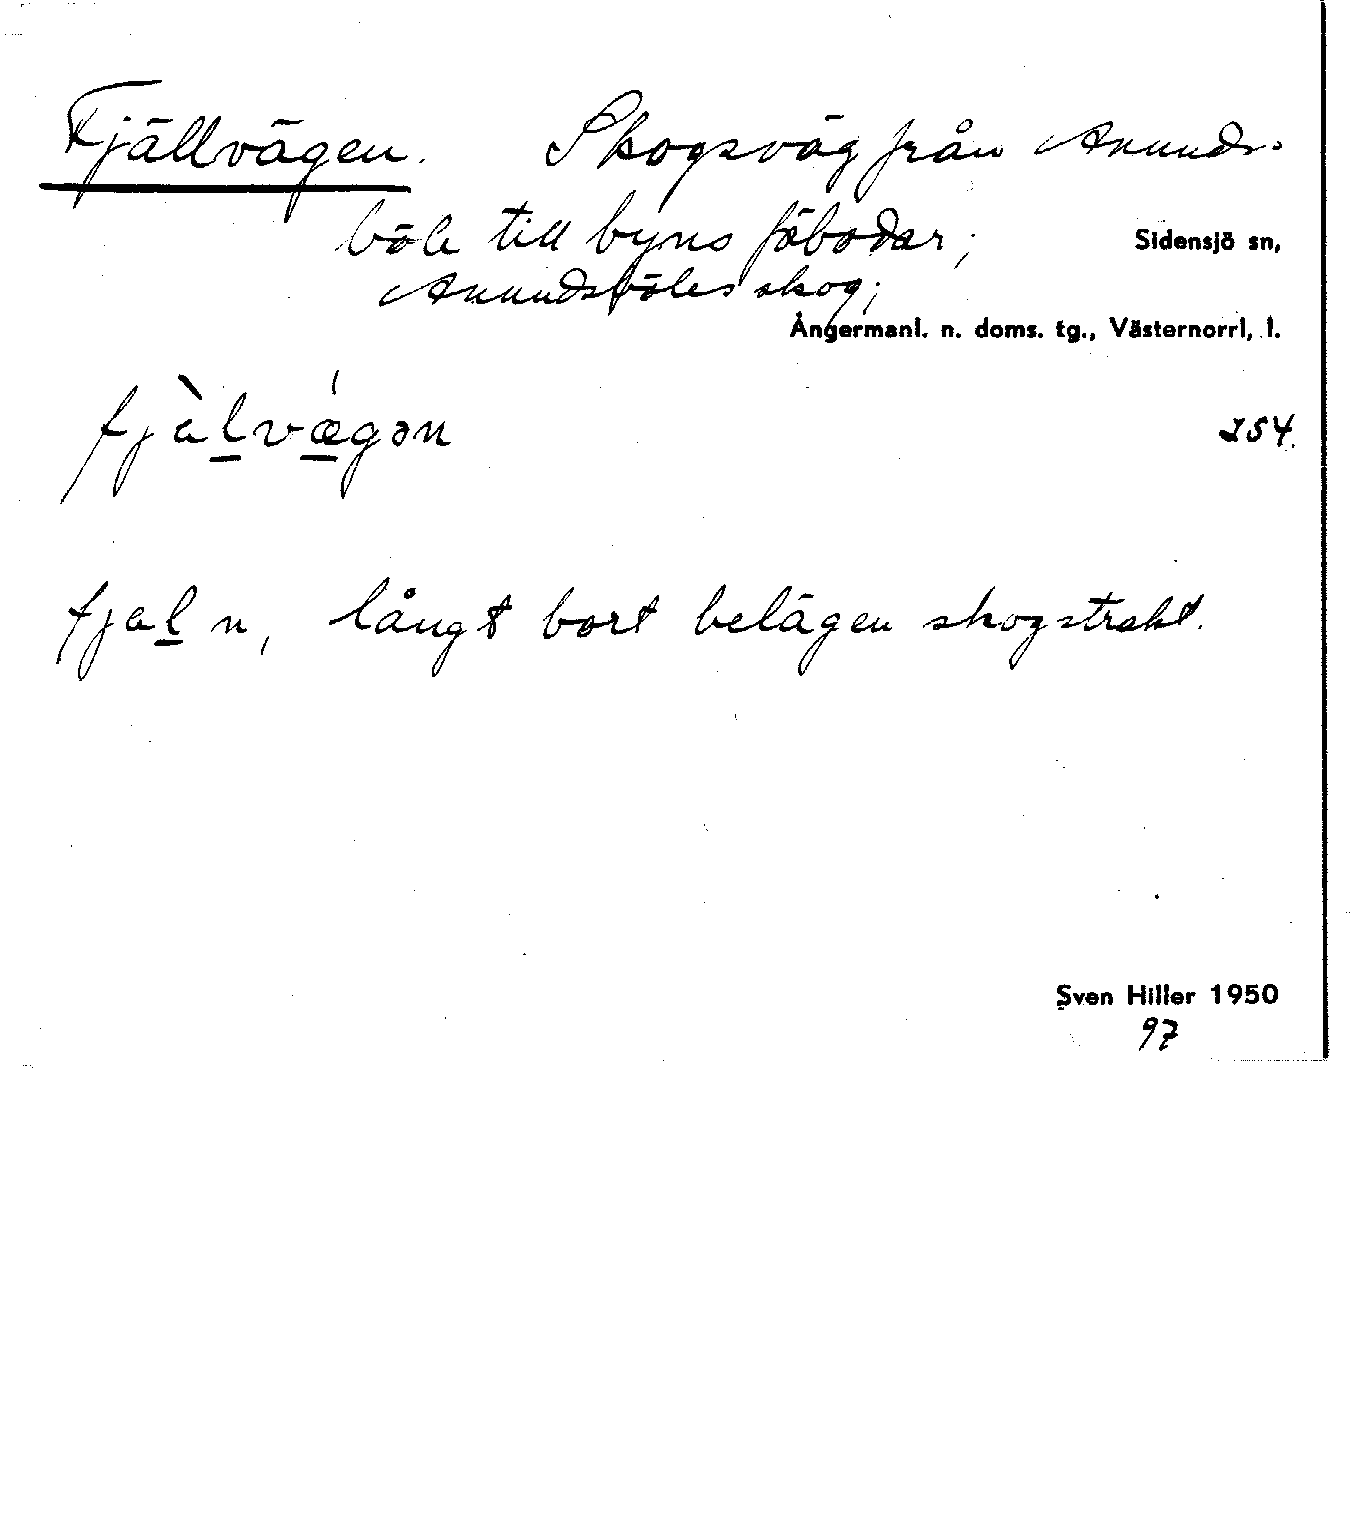 Fjällvägen. Skogsväg från Anunds-
böle till byns fäbodar;
Sidensjö sn,
Anundsböles skog;
Ångermanl. n. doms. tg., Västernorrl. l.
fjàl̲vǽ̲gən
254.
fjal̲ n, långt bort belägen skogstrakt.
Sven Hiller 1950
97